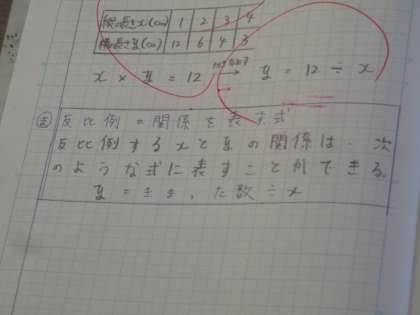 縦の長さx(cm) 1 2 3 4
横の長さy(cm) 12 6 4 3
x × y = 12 → y = 12 ÷ x
ま 反比例の関係を表す式
反比例するxとyの関係は、次
のような式に表すことができる。
y = きまった数 ÷ x